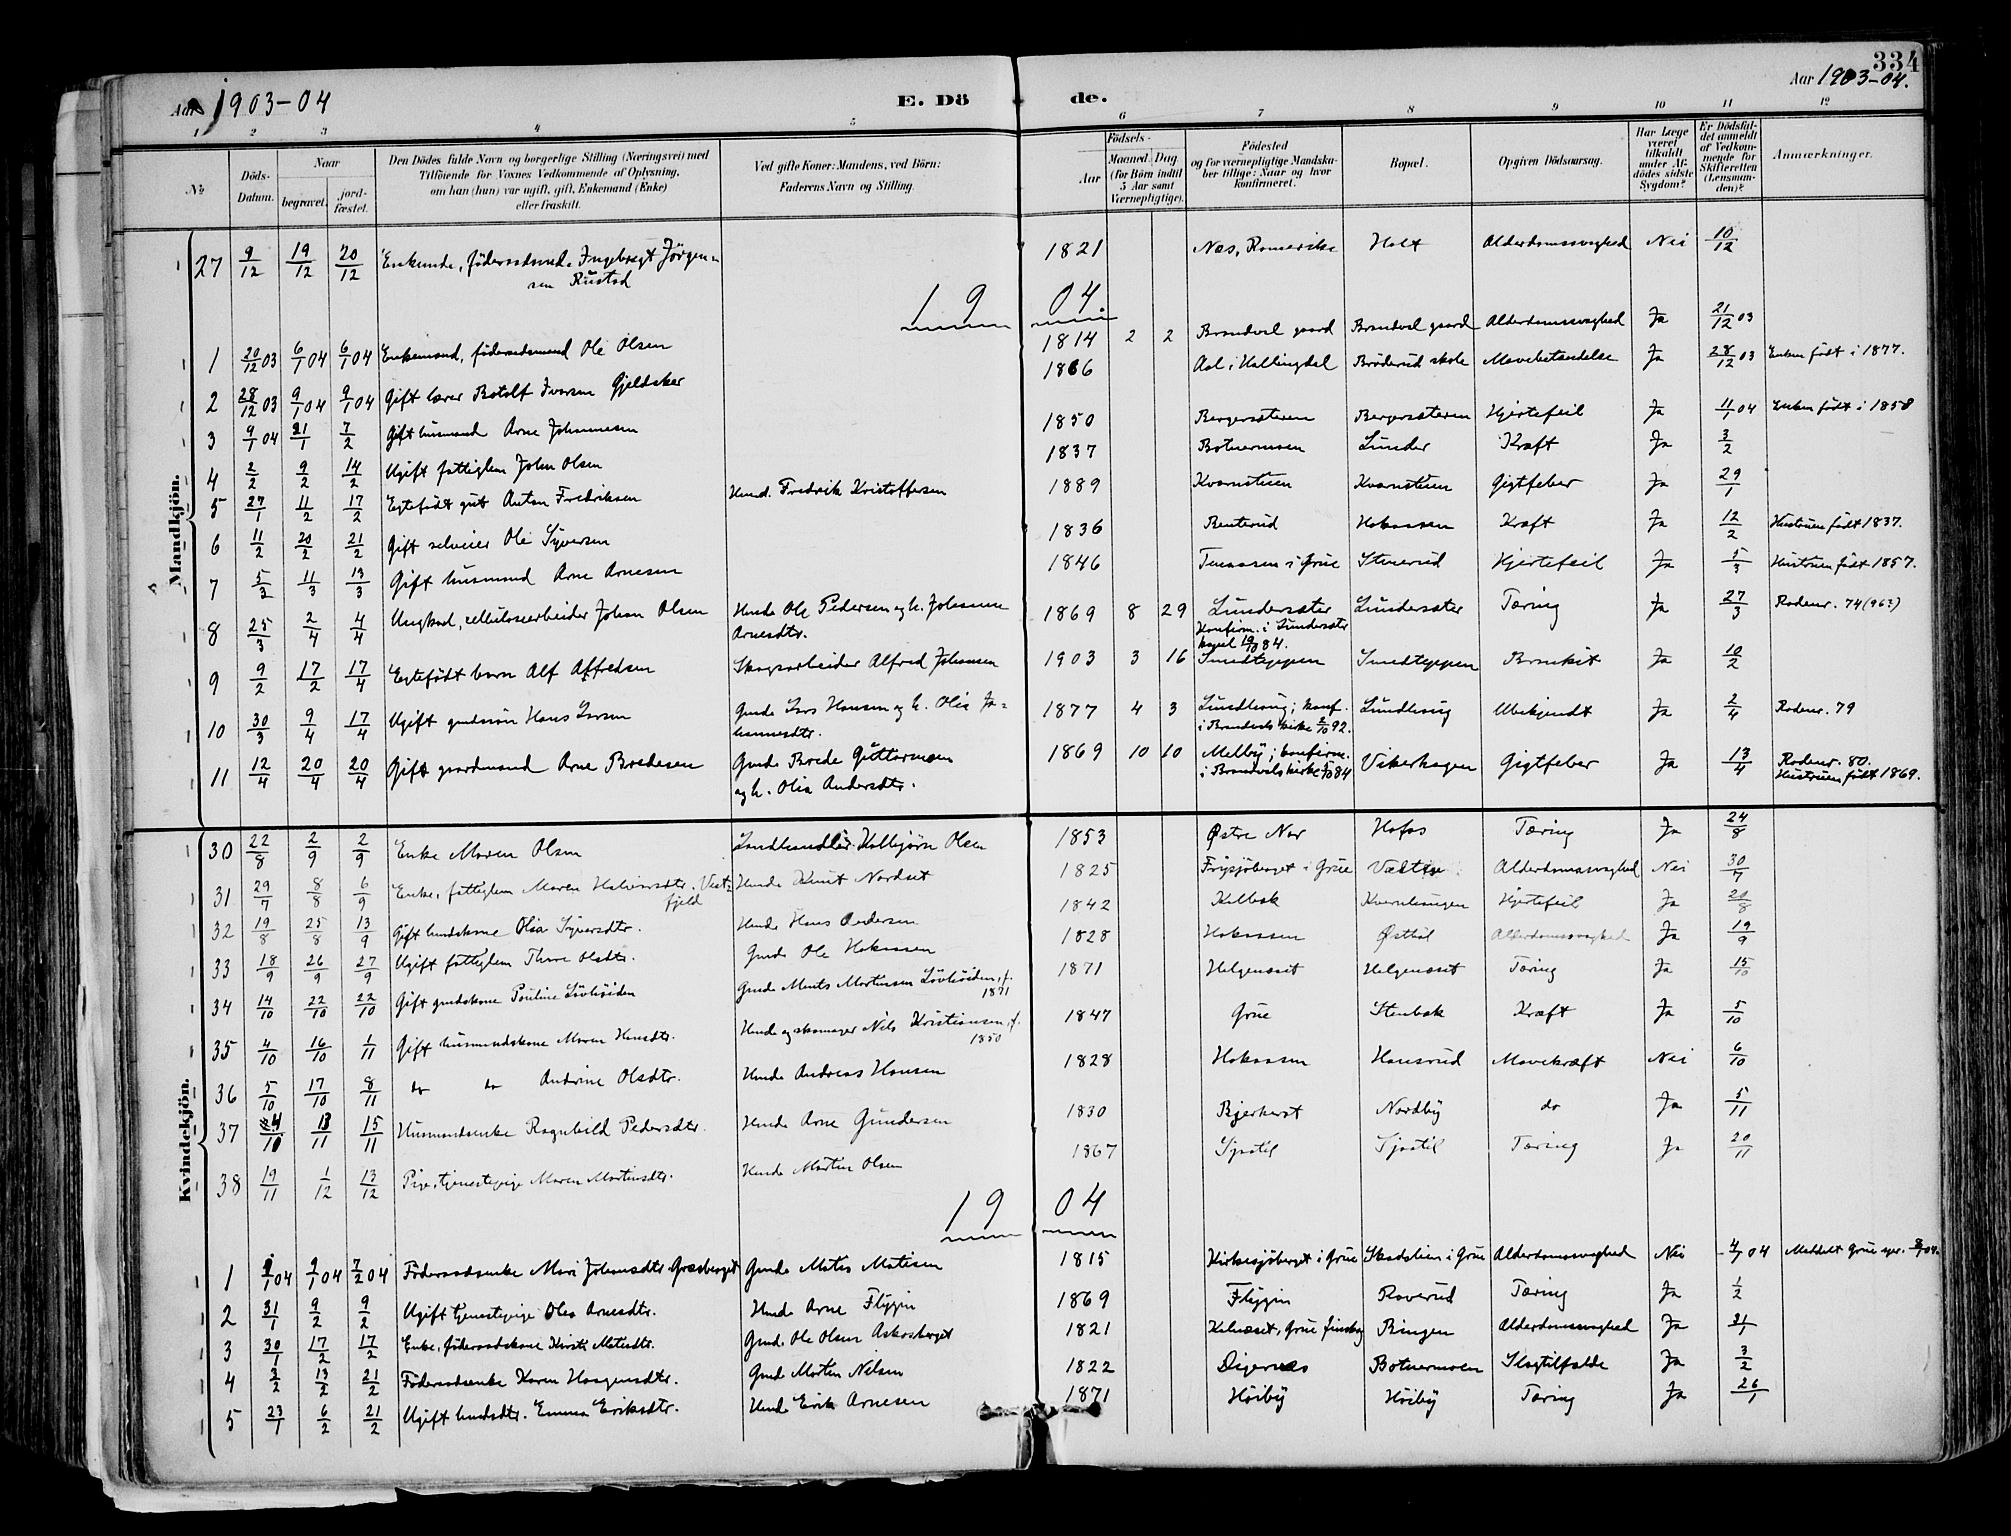 334
Aar 1903-04
E. Dö de.
Aar 1903-04.
1 2 3 4 5 6 7 8 9 10 11 12
No
Döds-Datum.
Naar begravet. jord-fæstet.
Den Dödes fulde Navn og borgerlige Stilling (Næringsvei) med
Tilföiende for Voxnes Vedkommende af Oplysning,
om han (hun) var ugift, gift, Enkemand (Enke)
eller fraskilt.
Ved gifte Koner: Mandens, ved Börn:
Faderens Navn og Stilling.
Födsels-
Aar Maaned. Dag.
(for Börn indtil 5 Aar samt Værnepligtige).
Födested
og for værnepligtige Mandskaber tillige: Naar og hvor konfirmeret.
Bopæl.
Opgiven Dödsaarsag.
Har Læge været tilkaldt under Afdödes sidste Sygdom?
Er Dödsfaldet anmeldt af Vedkommende for Skifteretten (Lensmanden)?
Anmærkninger.
Mandkjön.
27 9/12 19/12 20/12 Enkemand, föderaadsmd. Ingebregt Jörgensen Rustad 1821 Nes, Romerike Holt Alderdomssvaghed Nei 10/12
19 04.
1 20/12 03 6/1 04 6/1 04 Enkemand, föderaadsmand Ole Olsen 1814 2 2 Brandval gaard Brandval gaard Alderdomssvaghed Ja 21/12 03
2 28/12 03 9/1 04 9/1 04 Gift lærer Botolf Iversen Gjeldaker 1866 Aal i Hallingdal Bröderud skole Mavebetændelse Ja 28/12 03 Enken født i 1877.
3 9/1 04 21/1 7/2 Gift husmand Arne Johannesen 1850 Bergersæteren Bergersæteren Hjertefeil Ja 11/1 04 Enken født i 1858
4 2/2 9/2 14/2 Ugift fattiglem John Olsen 1837 Botnermoen Lunder Kræft Ja 3/2
5 27/1 11/2 17/2 Egtefödt gut Anton Fredriksen Husmd. Fredrik Kristoffersen 1889 Kvarnstuen Kvarnstuen Gigtfeber Ja 29/1
6 11/2 20/2 21/2 Gift selveier Ole Syversen 1836 Benterud Hokaasen Kræft Ja 12/2 Hustruen født 1837.
7 5/3 11/3 13/3 Gift husmand Arne Arnesen 1846 Tenaasen i Grue Stenerud Hjertefeil Ja 5/3 Hustruen født 1857.
8 25/3 2/4 4/4 Ungkarl, cellulosearbeider Johan Olsen Husmd. Ole Pedersen og h. Johanne Arnesdtr. 1869 8 29 Lundersæter Konfirm. i Lundersæter kapel 84. Lundersæter Tæring Ja 27/3 Rodenr. 74
9 9/2 17/2 17/4 Egtefödt barn Alf Alfredsen Skogsarbeider Alfred Johansen 1903 3 16 Smedteppen Smedteppen Bronkit Ja 10/2
10 30/3 9/4 17/4 Ugift gaardssön Hans Larsen Gmd. Lars Hansen og h. Olia Johannesdtr. 1877 4 3 Lundhaug; konf. i Brandvals kirke 2/10 92. Lundhaug Ubekjendt Ja 2/4 Rodenr. 79
11 12/4 20/4 20/4 Gift gaardmand Arne Bredesen Gmd. Brede Guttormsen og h. Olia Andersdtr. 1869 10 10 Melby; konfirm. i Brandvals kirke 84 Vikerhagen Gigtfeber Ja 13/4 Rodenr. 80. Hustruen født 1869.
Kvindekjön.
30 22/8 2/9 2/9 Enke Maren Olsen Landhandler Kolbjørn Olsen 1853 Østre Nor Hofos Tæring Ja 24/8
31 29/7 8/8 6/9 Enke, fattiglem Maren Halvorsdtr. Vestfjeld Husmd. Knut Nordset 1825 Frysjøberget i Grue Alderdomssvaghed Nei 30/7
32 19/8 25/8 13/9 Gift husmdskone Olia Syversdtr. Husmd. Hans Andersen 1842 Kolbæk Kvernhaugen Hjertefeil Ja 20/8
33 18/9 26/9 27/9 Ugift fattiglem Thore Olsdtr. Gmd. Ole Hokaasen 1828 Hokaasen Østtøl Alderdomssvaghed Ja 19/9
34 14/10 22/10 22/10 Gift gmdskone Pauline Løvhøiden Gmd. Ments Mortensen Løvhøiden, f. 1871 1871 Helgenæset Helgenæset Tæring Ja 15/10
35 4/10 16/10 1/11 Gift husmandskone Maren Hansdtr. Husmd. og skomager Nils Kristiansen, f. 1850 1847 Grue Stenbæk Kræft Ja 5/10
36 5/10 17/10 8/11 do do Andrine Olsdtr. Husmd. Andreas Hansen 1828 Hokaasen Hansrud Mavekræft Nei 6/10
37 24/10 13/11 15/11 Husmandsenke Ragnhild Pedersdtr. Husmd. Arne Gundersen 1830 Bjerkerst Nordby do Ja 5/11
38 19/11 1/12 13/12 Pige, tjenestepige Maren Mortensdtr. Husmd. Morten Olsen 1867 Sjøstil Sjøstil Tæring Ja 20/11
19 04
1 1/1 04 9/1 04 7/2 04 Föderaadsenke Mari Johansdtr. Græsberget Gmd. Mates Matisen 1815 Kirkesjøberget i Grue Skadalien i Grue Alderdomssvaghed Nei 4/1 04 Meddelt Grue spr.
2 31/1 9/2 9/2 Ugift tjenestepige Olea Arnesdtr. Husmd. Arne Flygin 1869 Flygin Roverud Tæring Ja 1/2
3 30/1 17/2 17/2 Enke, föderaadskone Kirsti Matisdtr. Gmd. Ole Olsen Askosberget 1821 Kalneset, Grue finskog Ringen Alderdomssvaghed Ja 31/1
4 3/2 13/2 21/2 Föderaadsenke Karen Haagensdtr. Gmd. Morten Nilsen 1822 Digernes Botnermoen Slagtilfælde Ja 3/2
5 23/1 6/2 21/2 Ugift husmdsdtr. Emma Eriksdtr. Husmd. Erik Arnesen 1871 Høiby Høiby Tæring Ja 26/1